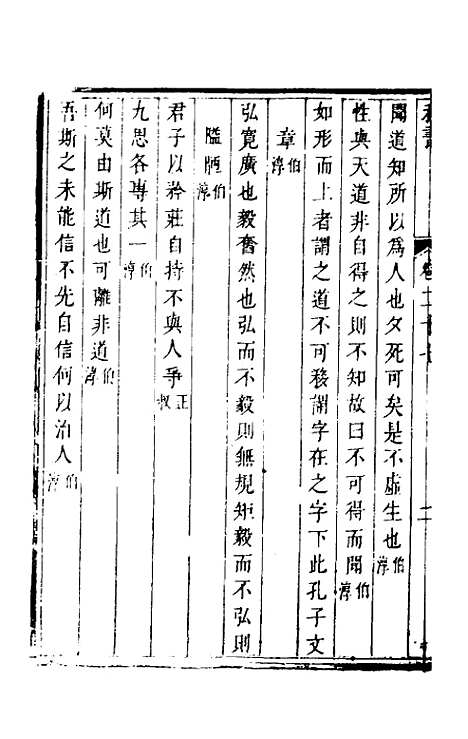 聞道知所以為人也夕死可矣是不虛生也伯淳
性與天道非自得之則不知故曰不可得而聞伯淳
如形而上者謂之道不可移謂字在之字下此孔子文
章伯淳
弘寬廣也毅奮然也弘而不毅則無規矩毅而不弘則
隘陋伯淳
君子以矜莊自持不與人爭正叔
九思各專其一伯淳
何莫由斯道也可離非道伯淳
吾斯之未能信不先自信何以治人伯淳